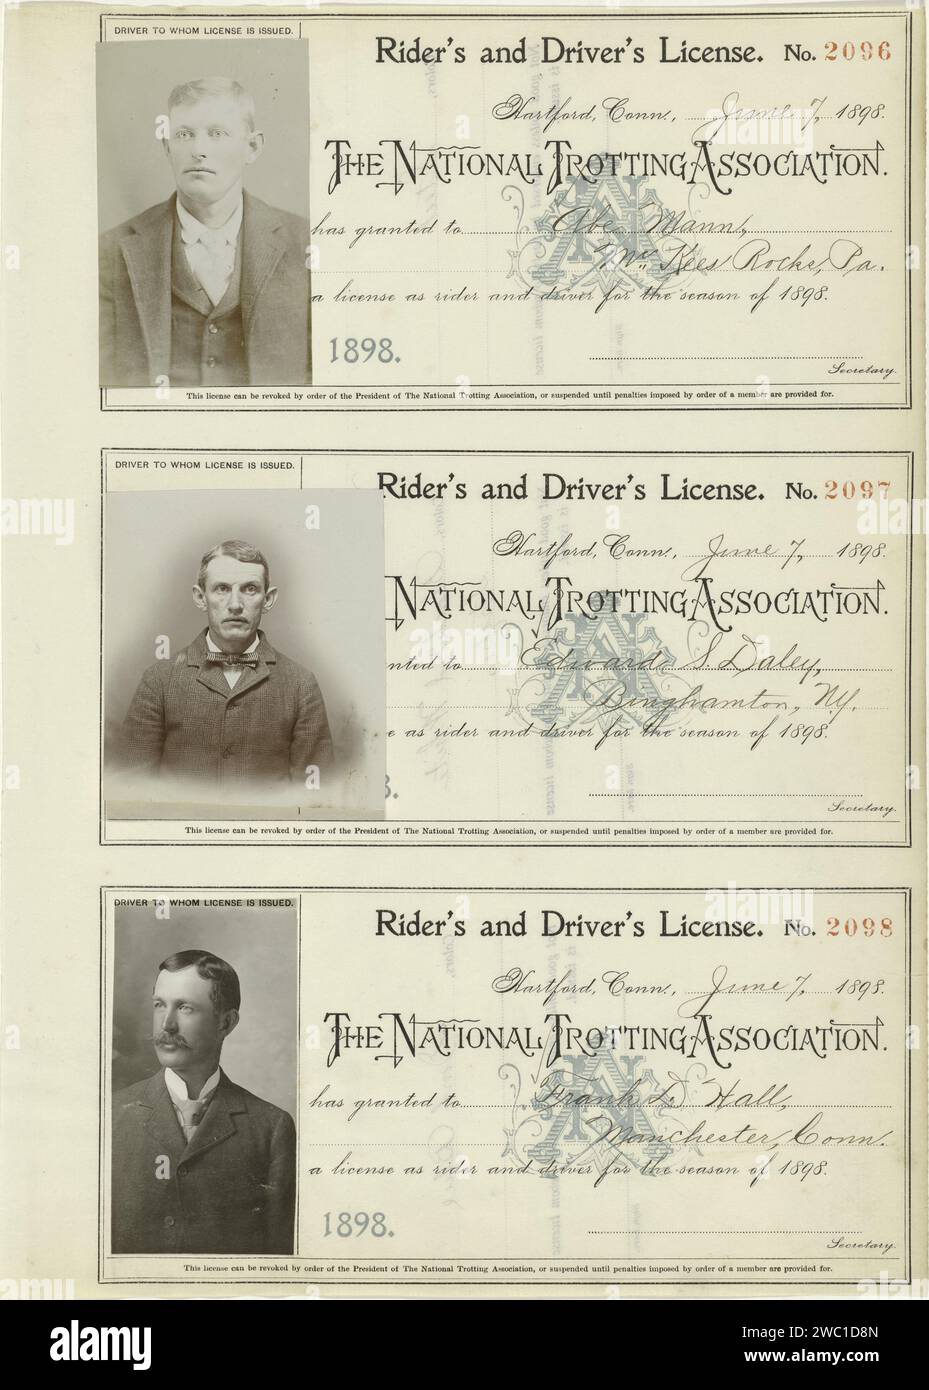 DRIVER TO WHOM LICENSE IS ISSUED.
Rider's and Driver's License. No. 2096
Hartford, Conn., June 7, 1898.
THE NATIONAL TROTTING ASSOCIATION.
has granted to Abe Mann,
Mc Kees Rocks, Pa.
a license as rider and driver for the season of 1898.
1898.
Secretary.
This license can be revoked by order of the President of The National Trotting Association, or suspended until penalties imposed by order of a member are provided for.
DRIVER TO WHOM LICENSE IS ISSUED.
Rider's and Driver's License. No. 2097
Hartford, Conn., June 7, 1898.
NATIONAL TROTTING ASSOCIATION.
nted to Edward S. Daley,
Binghamton, NY.
e as rider and driver for the season of 1898.
8.
Secretary.
This license can be revoked by order of the President of The National Trotting Association, or suspended until penalties imposed by order of a member are provided for.
DRIVER TO WHOM LICENSE IS ISSUED.
Rider's and Driver's License. No. 2098
Hartford, Conn., June 7, 1898.
THE NATIONAL TROTTING ASSOCIATION.
has granted to Frank D. Hall,
Manchester, Conn.
a license as rider and driver for the season of 1898.
1898.
Secretary.
This license can be revoked by order of the President of The National Trotting Association, or suspended until penalties imposed by order of a member are provided for.
alamy
Image ID: 2WC1D8N
www.alamy.com